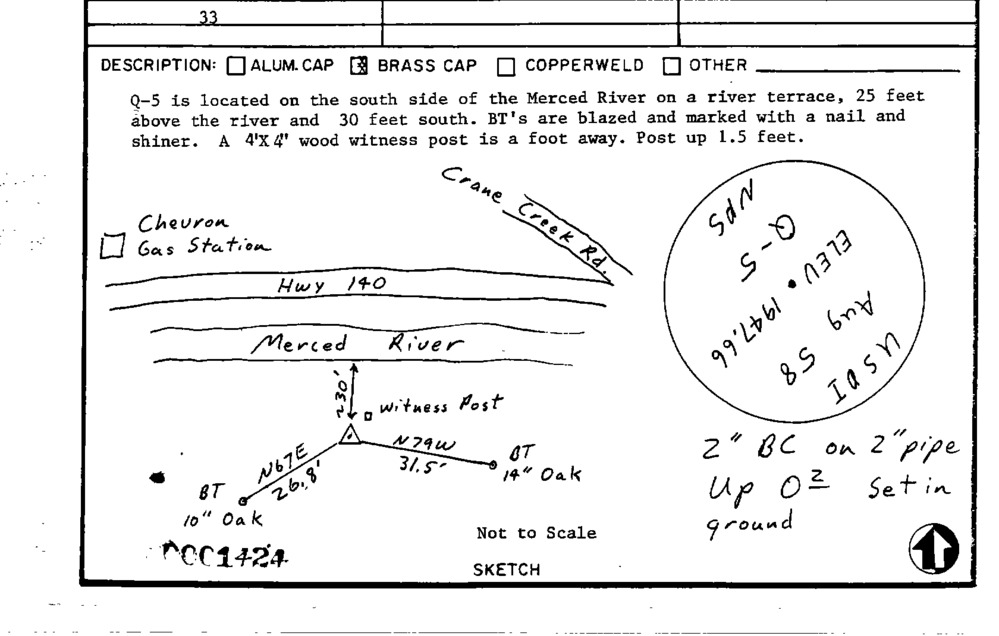 33
DESCRIPTION: ALUM. CAP BRASS CAP COPPERWELD OTHER
Q-5 is located on the south side of the Merced River on a river terrace, 25 feet
above the river and 30 feet south. BT's are blazed and marked with a nail and
shiner. A 4'X4" wood witness post is a foot away. Post up 1.5 feet.
Crane Creek Rd.
Chevron
Gas Station
Hwy 140
Merced River
±30'
Witness Post
N67E
26.8'
N79W
31.5'
BT
10" Oak
BT
14" Oak
NPS
Q-5
ELEV 1947.66
Aug 58
USDI
2" BC on 2" pipe
Up 0² Set in
ground
Not to Scale
SKETCH
0001424